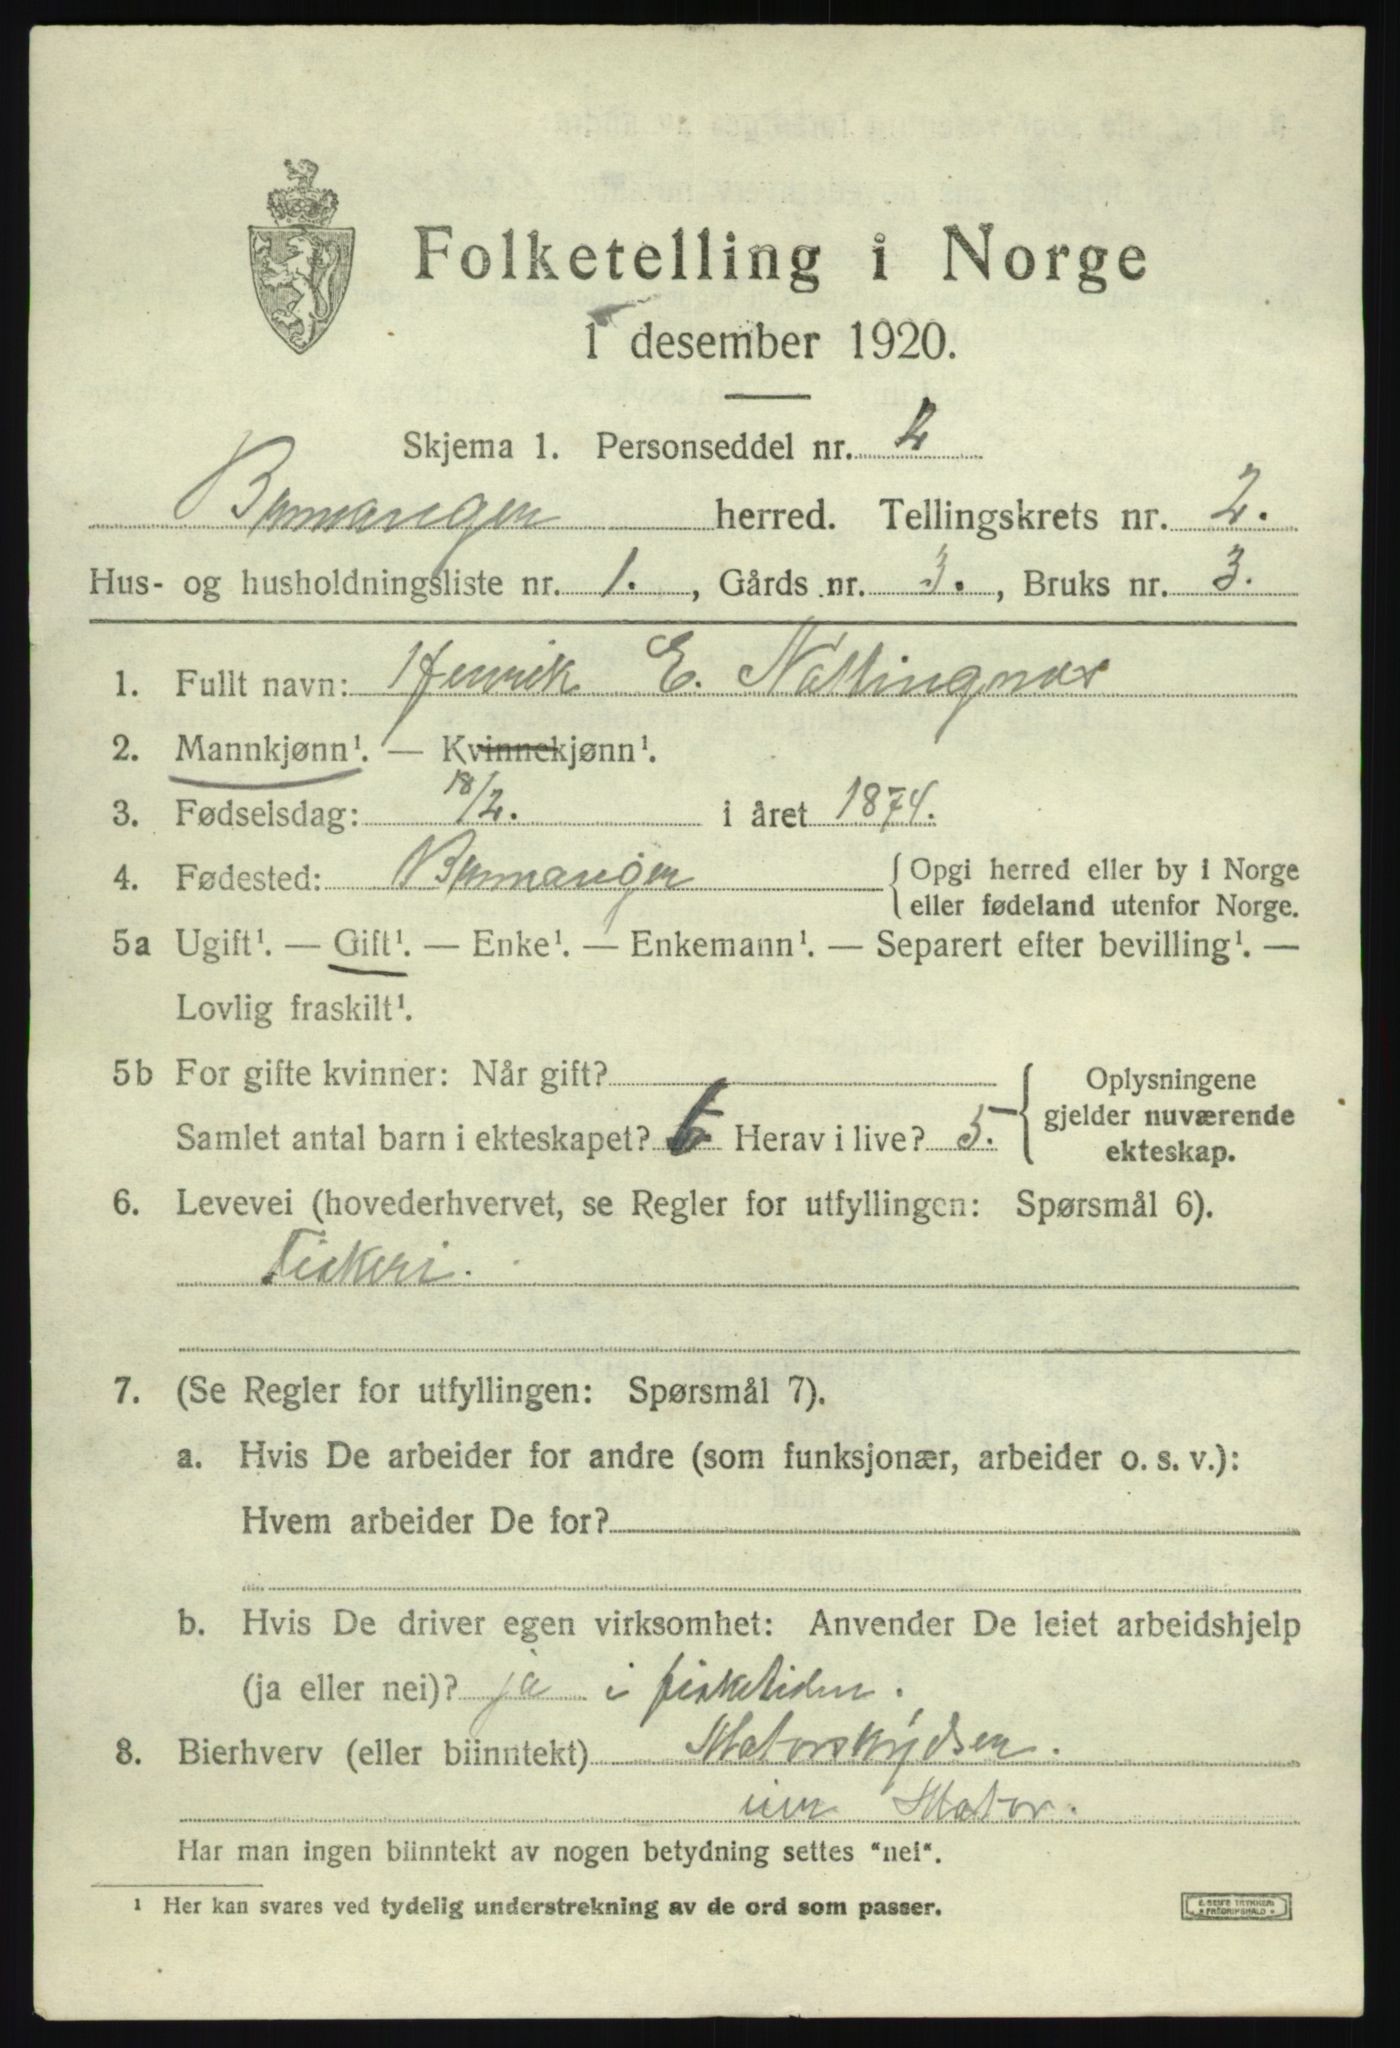 Folketelling i Norge
1 desember 1920.
Skjema 1. Personseddel nr. 2
Bremanger herred. Tellingskrets nr. 2.
Hus- og husholdningsliste nr. 1. , Gårds nr. 3. , Bruks nr. 3.
1. Fullt navn: Henrik E. Nøttingnes
2. Mannkjønn¹. — Kvinnekjønn¹.
3. Fødselsdag: 18/2. i året 1874.
4. Fødested: Bremanger { Opgi herred eller by i Norge
eller fødeland utenfor Norge.
5a Ugift¹. — Gift¹. — Enke¹. — Enkemann¹. — Separert efter bevilling¹. —
Lovlig fraskilt¹.
5b For gifte kvinner: Når gift?
Samlet antal barn i ekteskapet? 6 Herav i live? 5.
Oplysningene
gjelder nuværende
ekteskap.
6. Levevei (hovederhvervet, se Regler for utfyllingen: Spørsmål 6).
Fiskeri.
7. (Se Regler for utfyllingen: Spørsmål 7).
a. Hvis De arbeider for andre (som funksjonær, arbeider o. s. v.):
Hvem arbeider De for?
b. Hvis De driver egen virksomhet: Anvender De leiet arbeidshjelp
(ja eller nei)? ja i fisketiden.
8. Bierhverv (eller biinntekt) Motorskydsen.
Motor.
Har man ingen biinntekt av nogen betydning settes "nei".
¹ Her kan svares ved tydelig understrekning av de ord som passer.